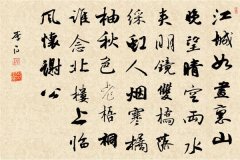 江城如畫裏山
晚望晴空兩水
夾明鏡雙橋落
綵虹人烟寒橘
柚秋色老梧桐
誰念北樓上临
風懷謝公